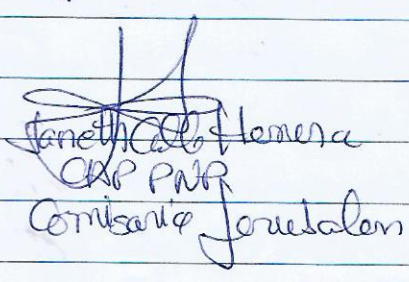 Janeth Ccllo Herrera
CAP PNP
Comisaria Jerusalen